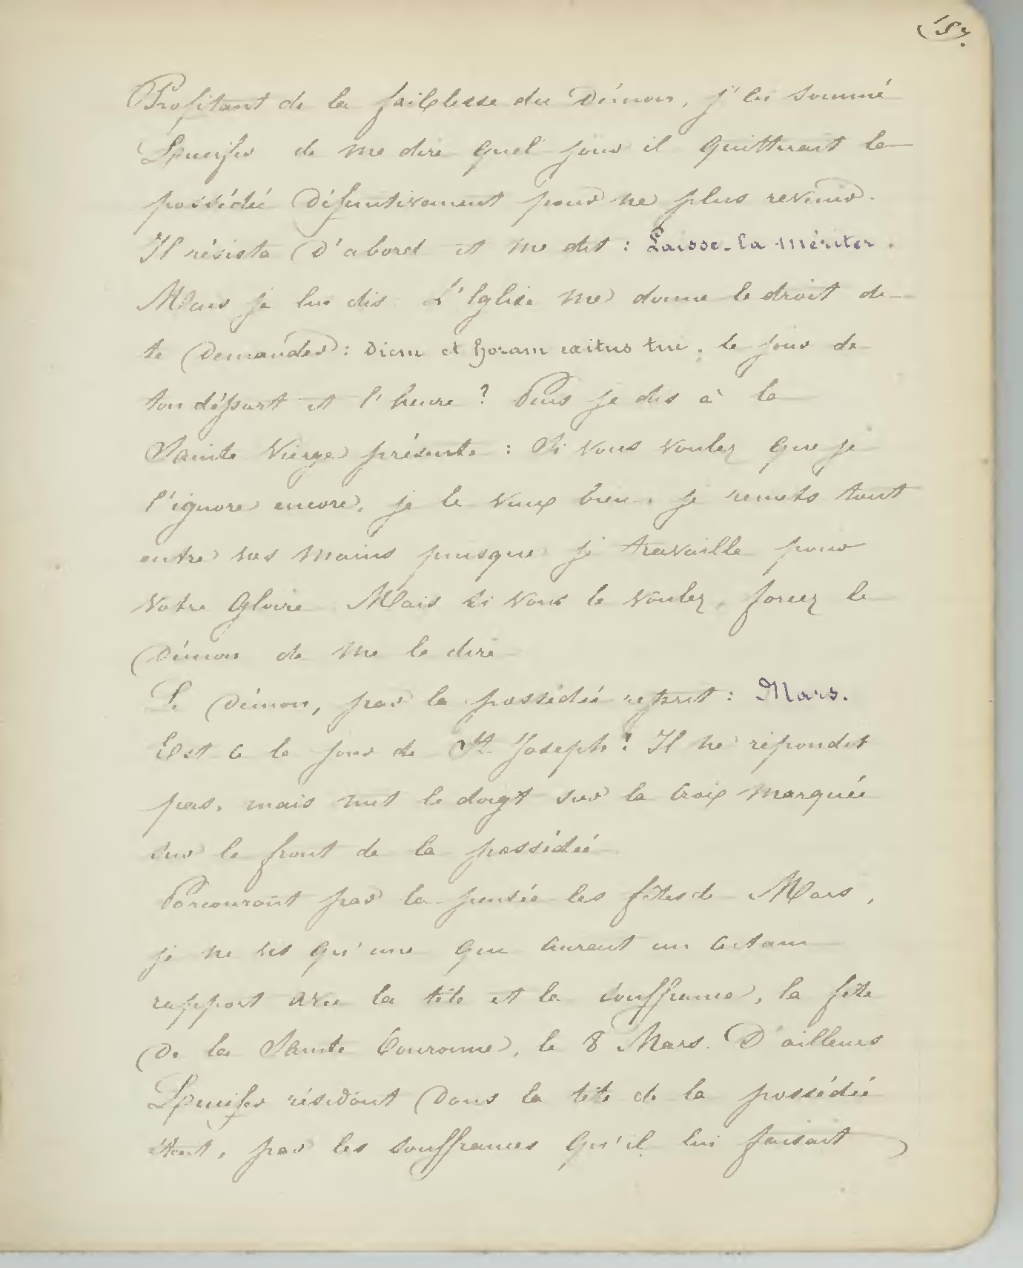 187.
Profitant de la faiblesse du Démon, j'ai sommé
Lucifer de me dire quel jour il quitterait la
possédée définitivement pour ne plus revenir.
Il résista d'abord et me dit : Laisse-la mériter.
Mais je lui dis : L'Eglise me donne le droit de
te demander : Diem et horam exitus tui, le jour de
ton départ et l'heure ? Puis je dis à la
Sainte Vierge présente : Si vous voulez que je
l'ignore encore, je le veux bien, je remets tout
entre vos mains puisque je travaille pour
votre gloire. Mais si vous le voulez, forcez le
Démon de me le dire
Le Démon, par la possédée reprit : Mars.
Est-ce le jour de St Joseph ? Il ne répondit
pas, mais mit le doigt sur la croix marquée
sur le front de la possédée
Parcourant par la pensée les fêtes de Mars,
je ne vis qu'une qui aurait un certain
rapport avec la tête et la souffrance, la fête
de la Sainte Couronne, le 8 Mars. D'ailleurs
Lucifer résidant dans la tête de la possédée
était, par les souffrances qu'il lui faisait